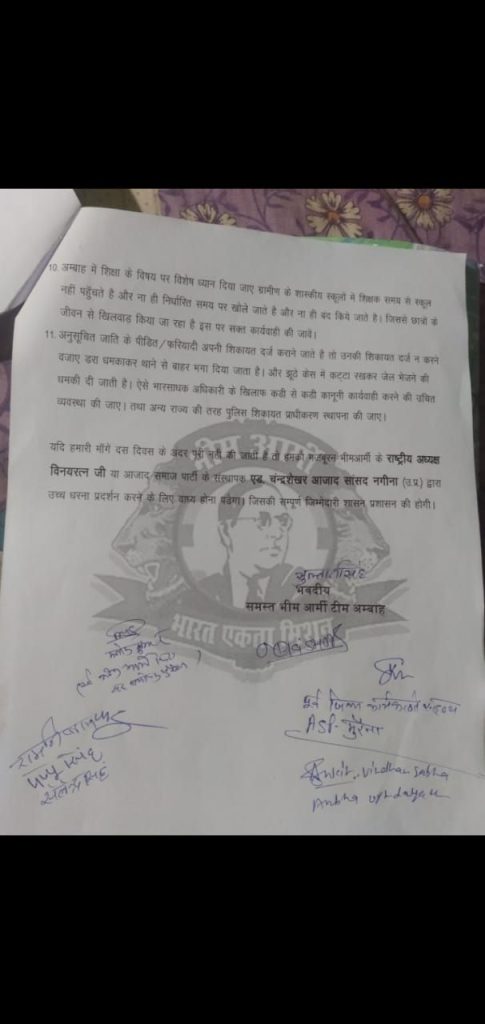 10. अम्बाह में शिक्षा के विषय पर विशेष ध्यान दिया जाए ग्रामीण के शास्कीय स्कूलों में शिक्षक समय से स्कूल
नहीं पहुँचते है और ना ही निर्धारित समय पर खोले जाते है और ना ही बंद किये जाते है। जिससे छात्रों के
जीवन से खिलवाड़ किया जा रहा है इस पर सक्त कार्यवाही की जावे।
11. अनुसूचित जाति के पीडित / फरियादी अपनी शिकायत दर्ज कराने जाते है तो उनकी शिकायत दर्ज न करने
वजाए डरा धमकाकर थाने से बाहर भगा दिया जाता है। और झूठे केस में कट्टा रखकर जेल भेजने की
धमकी दी जाती है। ऐसे भारसाधक अधिकारी के खिलाफ कडी से कडी कानूनी कार्यवाही करने की उचित
व्यवस्था की जाए। तथा अन्य राज्य की तरह पुलिस शिकायत प्राधीकरण स्थापना की जाए।
यदि हमारी माँगें दस दिवस के अंदर पूरी नहीं की जाती है तो हमको मजबूरन भीमआर्मी के राष्ट्रीय अध्यक्ष
विनयरत्न जी या आजाद समाज पार्टी के संस्थापक एड. चन्द्रशेखर आजाद सांसद नगीना (उ.प्र.) द्वारा
उच्च धरना प्रदर्शन करने के लिए वाध्य होना पडेगा। जिसकी सम्पूर्ण जिम्मेदारी शासन प्रशासन की होगी।
भीम आर्मी
भवदीय
समस्त भीम आर्मी टीम अम्बाह
भारत एकता मिशन
पूर्व जिला
ASP मुरैना
पप्पू सिंह
Vidhan Sabha
Ambha